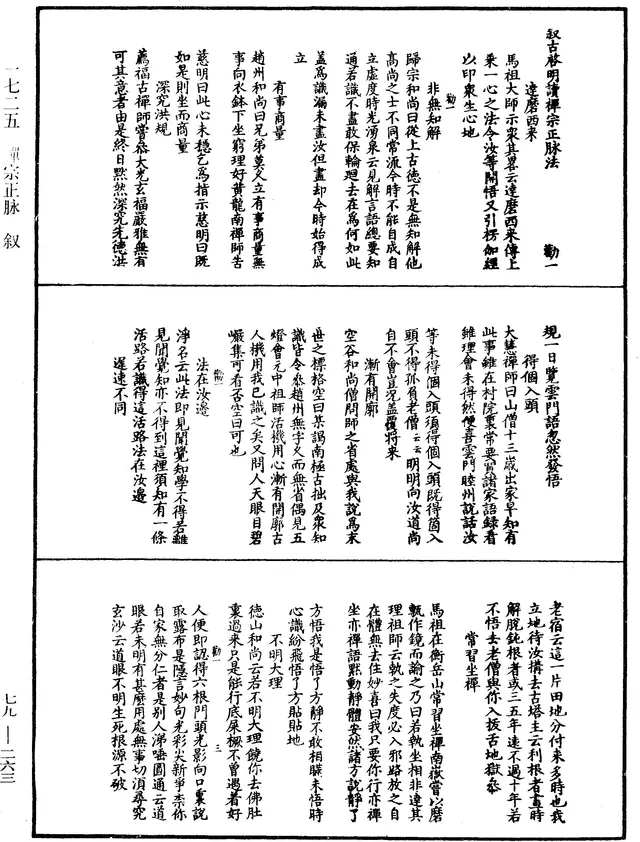 叙古啓明讀禪宗正脉法　　勸一
達磨西來
馬祖大師示衆其畧云達磨西來傳上
乘一心之法令汝等開悟又引楞伽經
以印衆生心地
勸一
非無知解
歸宗和尚曰從上古德不是無知解他
高尚之士不同常流今時不能自成自
立虚度時光湧泉云見解言語總要知
通若識不盡敢保輪廻去在為何如此
蓋為識漏未盡汝但盡却今時始得成
立
有事商量
趙州和尚曰兄弟莫久立有事商量無
事向衣鉢下坐窮理好黄龍南禪師告
慈明曰此心未穩乞為指示慈明曰既
如是則坐而商量
深究洪規
薦福古禪師嘗叅大光玄福嚴雅無有
可其意者由是終日黙然深究先德洪
一七二五　禪宗正脉　叙
規一日覽雲門語忽然發悟
得個入頭
大慧禪師曰山僧十三歲出家早知有
此事雖在村院裏常要買諸家語録看
雖理會未得然便喜雲門睦州説話汝
等未得個入頭須得個入頭既得箇入
頭不得孤負老僧云云明明向汝道尚
自不會豈况蓋覆將來
漸有開廓
空谷和尚僧問師之省處與我説為末
世之標格空曰某謁南極古拙及衆知
識皆令叅趙州無字久而無省偶見五
燈會元中祖師活機用心漸有開廓古
人機用我已識之矣又問人天眼目碧
巗集可看否空曰可也
勸一
法在汝邊
淨名云此法即見聞覺知學不得若離
見聞覺知亦不得到這裡須知有一條
活路若識得這活路法在汝邊
遲速不同
老宿云這一片田地分付來多時也我
立地待汝搆去古塔主云利根者晝時
解脱鈍根者或三五年遠不過十年若
不悟去老僧與你入拔舌地獄叅
常習坐禪
馬祖在衡岳山常習坐禪南嶽嘗以磨
甎作鏡而諭之乃曰若執坐相非達其
理祖師云執之失度必入邪路放之自
在體無去住妙喜曰我只要你行亦禪
坐亦禪語黙動靜體安然諸方説靜了
方悟我是悟了方靜不敢相瞞未悟時
心識紛飛悟了方貼貼地
不明大理
德山和尚云若不明大理饒你去佛肚
裏過來只是能行底屎橛不曾遇著好
勸一　三
人便即認得六根門頭光影向口裏説
取露布是隱言妙句光彩尖新爭柰你
自家無分仁者是别人涕唾圓通云道
眼若未明有甚麽用處無事切須尋究
玄沙云道眼不明生死根源不破
七九——二六三